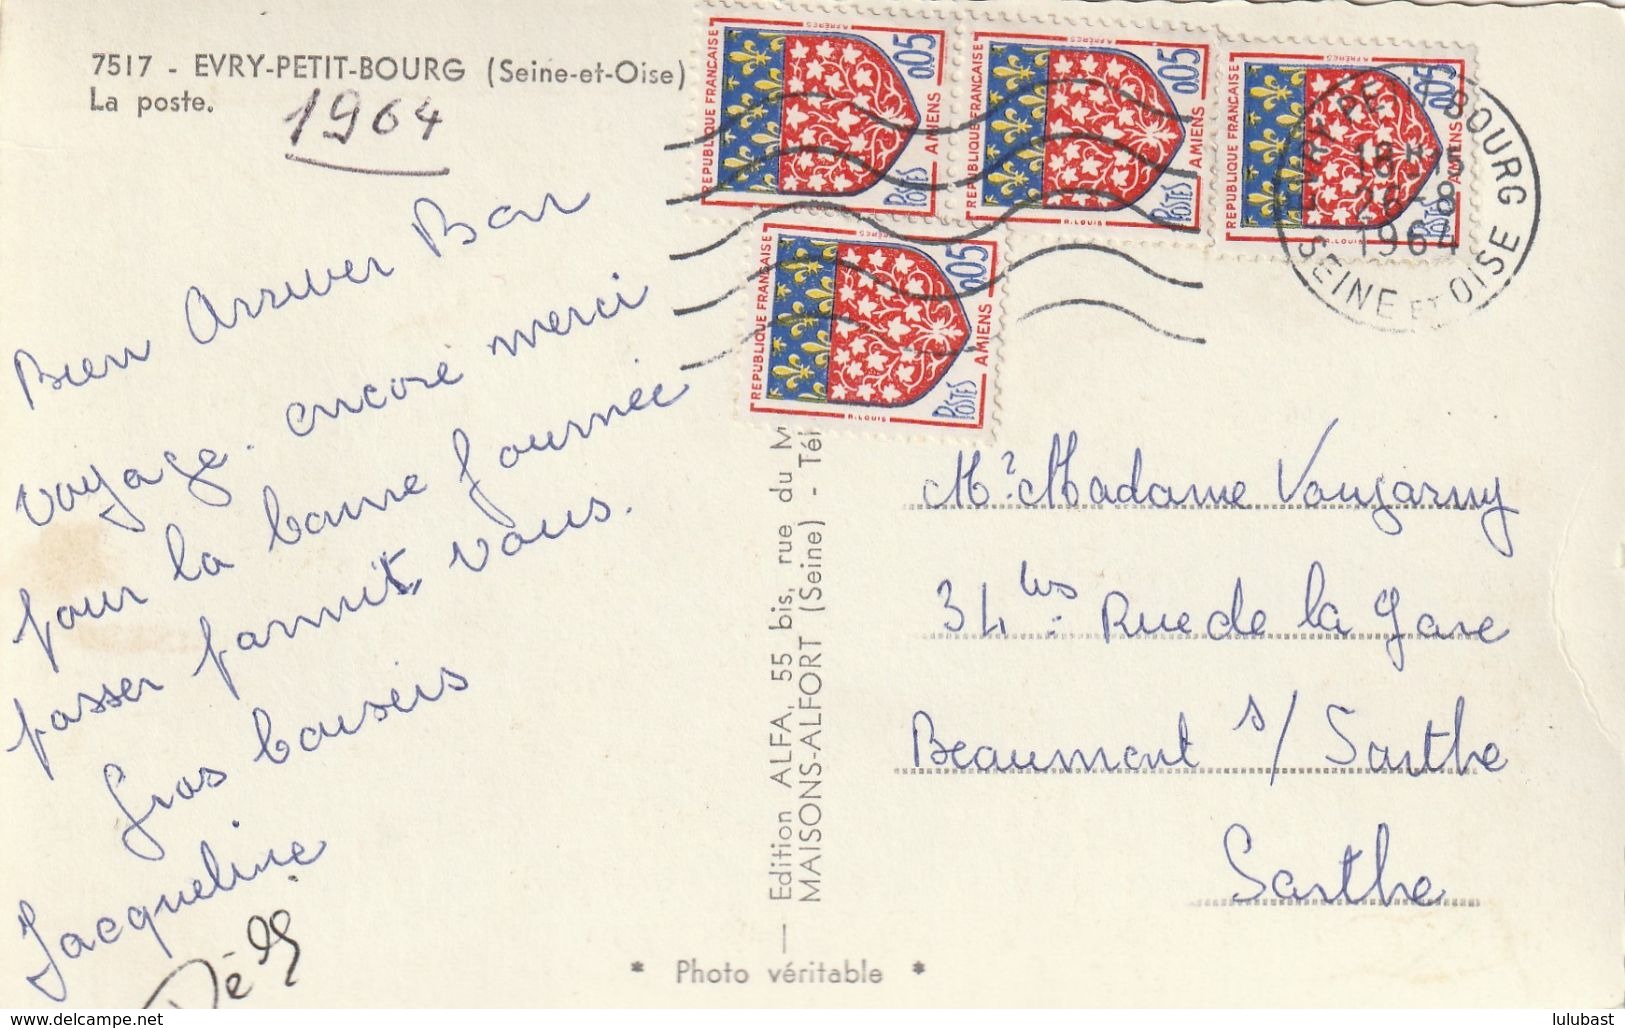 7517 - EVRY-PETIT-BOURG (Seine-et-Oise)
La poste.
1964
Bien Arriver Bon
voyage. encore merci
pour la bonne journée
passer parmit vous.
Gros baisers
Jacqueline
REPUBLIQUE FRANÇAISE
0,05
AMIENS
POSTES
REPUBLIQUE FRANÇAISE
0,05
AMIENS
POSTES
R. LOUIS
REPUBLIQUE FRANÇAISE
0,05
AMIENS
POSTES
REPUBLIQUE FRANÇAISE
0,05
AMIENS
POSTES
R. LOUIS
BOURG
18
1964
SEINE ET OISE
Edition ALFA, 55 bis, rue du M
MAISONS-ALFORT (Seine) - Tél
* Photo véritable *
Mr. Madame Vougarny
34 bis Rue de la Gare
Beaumont s/ Sarthe
Sarthe
www.delcampe.net
lulubast